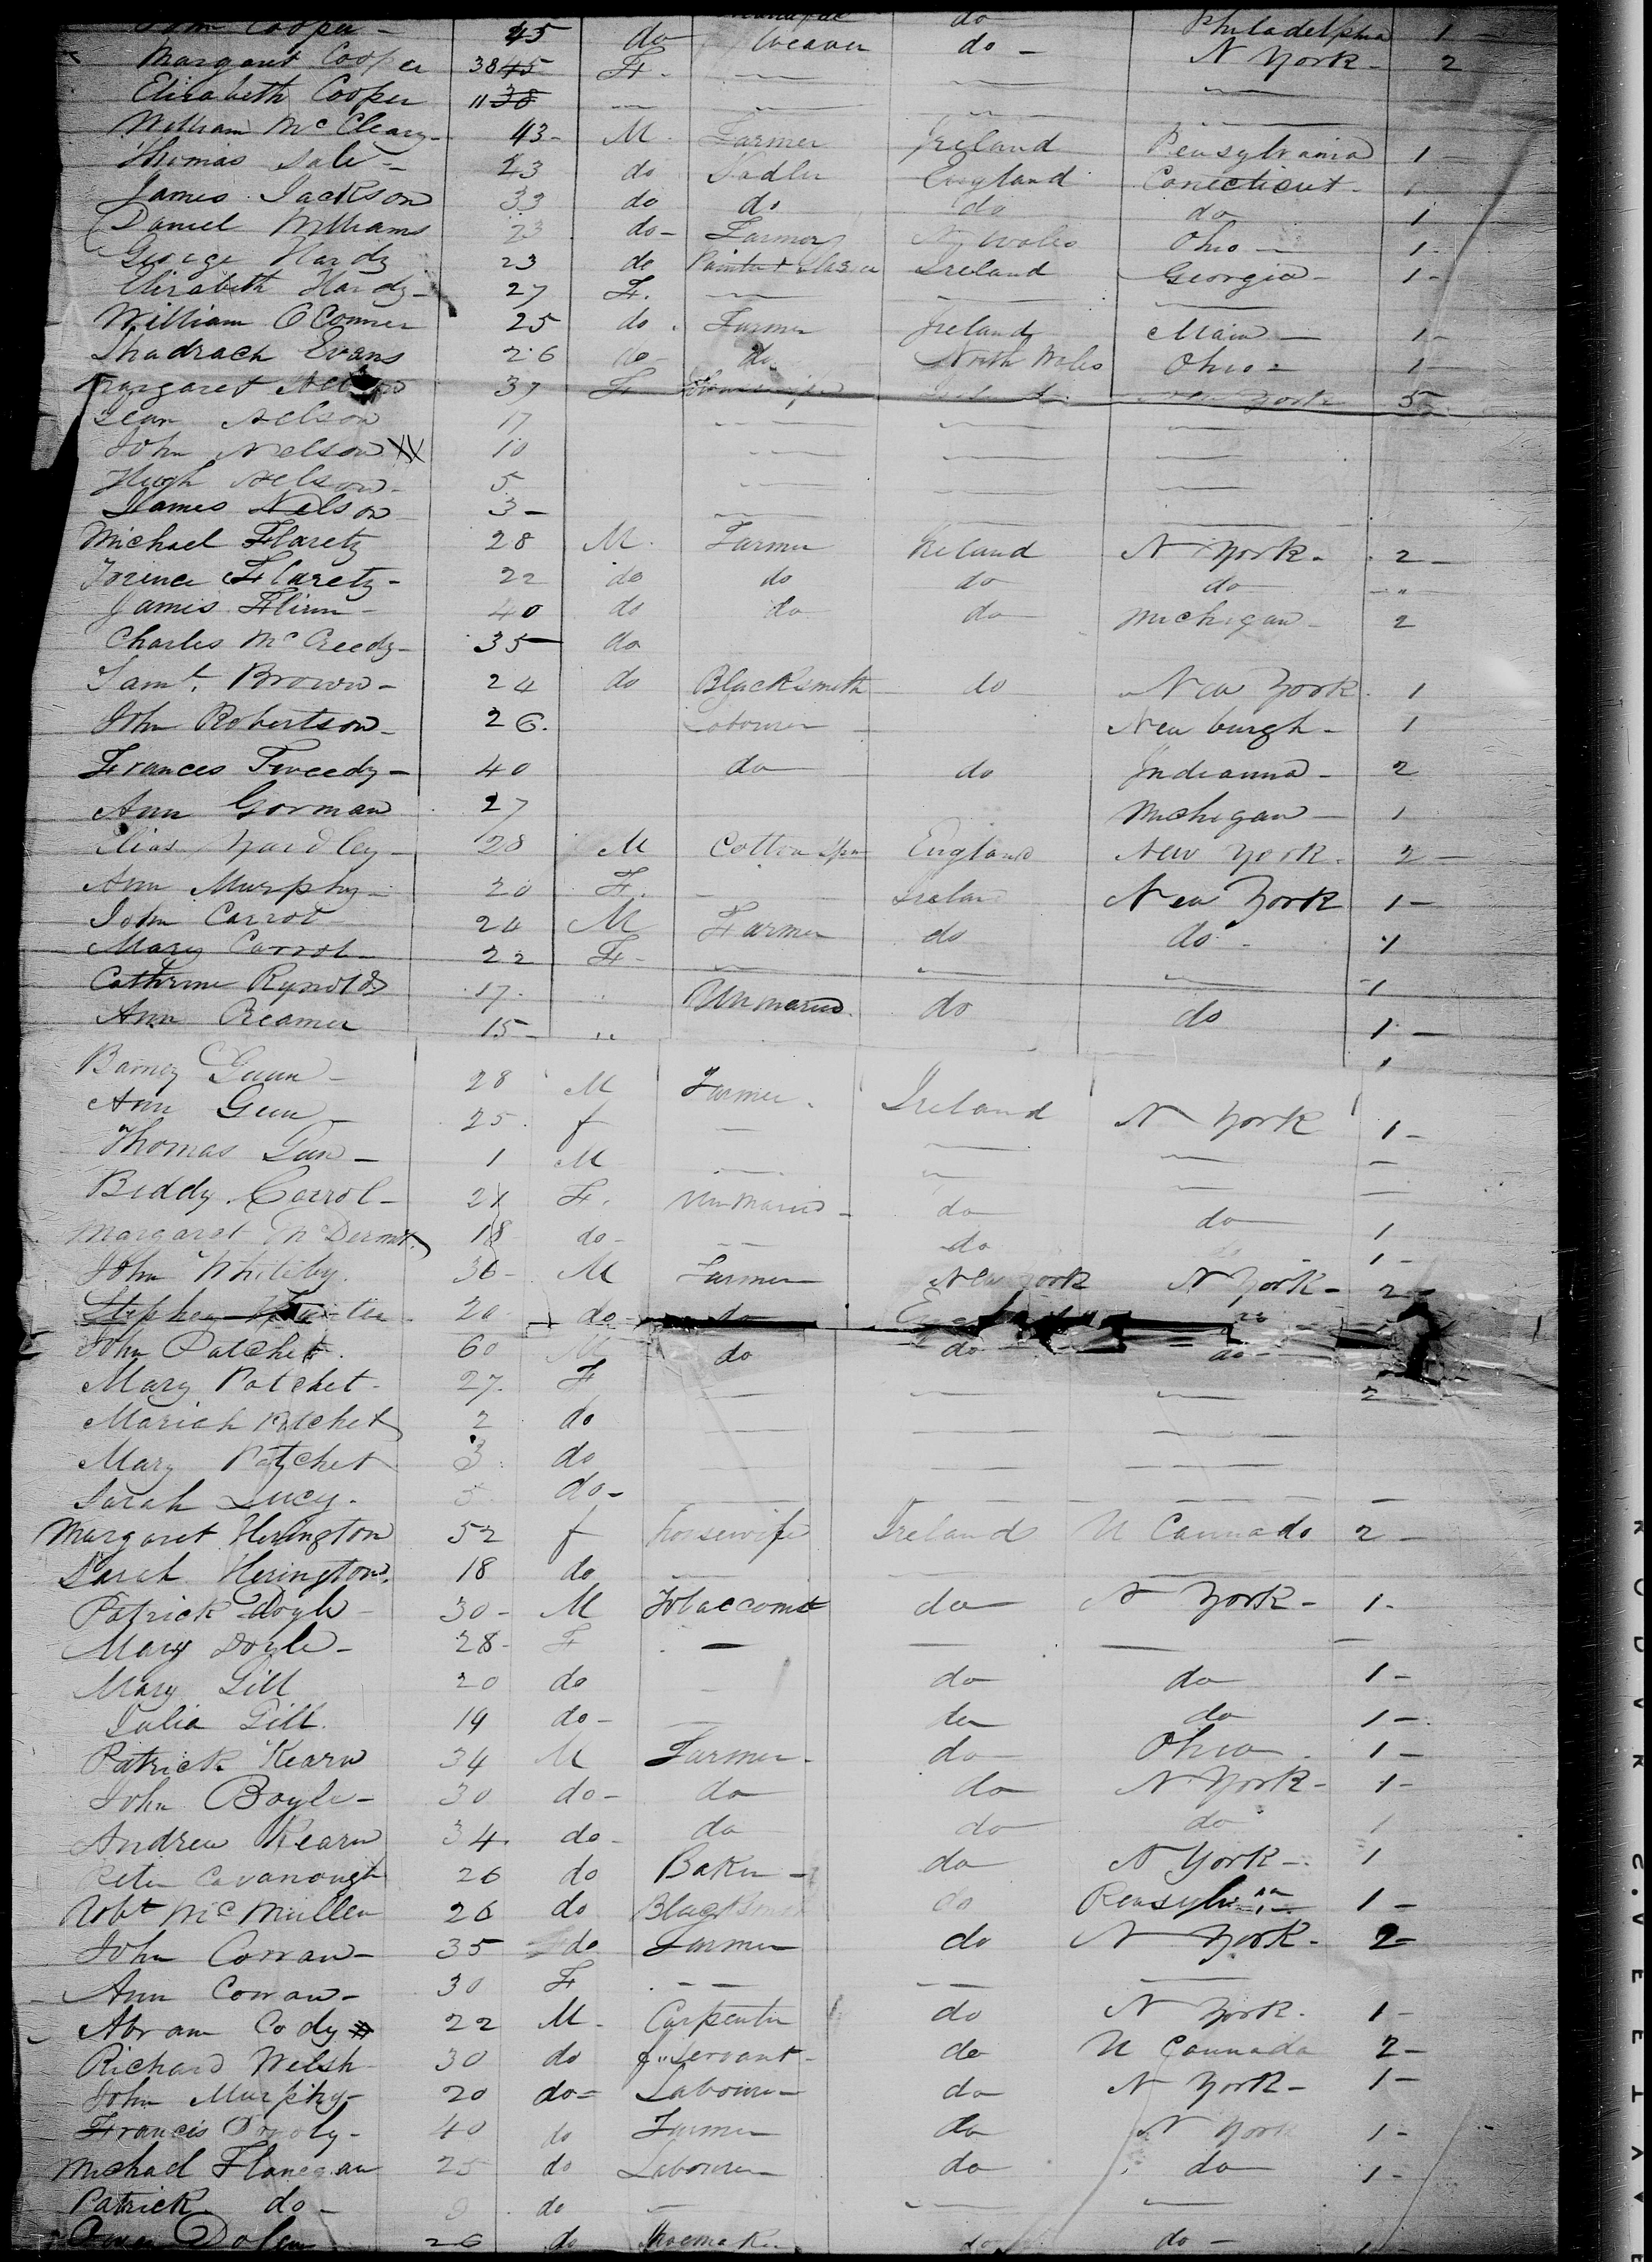 Cooper - 45 do Weaver do - Philadelphia 1 -
Margaret Cooper 38 45 F. — — N York - 2
Elizabeth Cooper 11 38 — — — —
William McCleary - 43 - M. Farmer Ireland Pensylvania 1 -
Thomas Sale - 23 do Sadler England Conecticut - 1
James Jackson 33 do do do do 1
Daniel Williams 23 do - Farmer N Wales Ohio - 1 -
George Hardy 23 do Painter & Glazier Ireland Georgia - 1 -
Elizabeth Hardy - 27 F. — — —
William O Conner 25 do. Farmer Ireland Main - 1 -
Shadrach Evans 26 do - do North Wales Ohio - 1 -
Margaret Nelson 37 F Ireland New York 5
Jean Nelson 17 — — —
John Nelson XX 10 — — —
Hugh Nelson - 5 — — —
James Nelson 3 - — — —
Michael Flarety 28 M. Farmer Ireland N York - 2 -
Flarety - 22 do do do do "
James Flinn - 40 do do do Michigan - 2
Charles McCreedy - 35 - do
Saml. Brown - 24 do Blacksmith do New York 1
John Robertson - 26. Labourer New burgh - 1
Frances Tweedy - 40 do do Indianna - 2
Ann Gorman 27 Michigan - 1
Elias Yardley - 28 M Cotton Spn England New York - 2 -
Ann Murphy - 20 F. - Ireland New York 1 -
John Carrol 24 M Farmer do do - 1
Mary Carrol - 22 F - — — — 1
Catherine Rynolds 17 - " Unmaried do do 1 -
Ann Creamer 15 - " 1
Barney Gunn - 28 M Farmer. Ireland N York 1 -
Ann Gun - 25. f — — — -
Thomas Gun - 1 M — — — -
Biddy Carrol - 21 F. Unmaried - do do 1
Margaret McDermt. 18 do - — do 1 -
John Whiteby 36 - M Farmer New York N York - 2 -
Stephen 20 - do - do
John Patchet. 60 M do do do -
Mary Patchet - 27. F — — — 2
Mariah Patchet 2 do — — —
Mary Patchet 3 do — — —
Sarah Lucy. 5 do - — — — -
Margaret Herington 52 f housewife Ireland U Cannada 2 -
Sarah Herington. 18 do — — —
Patrick Doyle - 30 - M Tobaccomt do N York - 1 -
Mary Doyle - 28 - F — — — -
Mary Gill 20 do — do do 1 -
Julia Gill. 14 do - — do do 1 -
Patrick Kearn 34 M Farmer - do Ohio. 1 -
John Boyle - 30 do - do do N York - 1 -
Andrew Kearn 34. do - do do do 1
Peter Cavanough 26 do Baker - do N York - 1
Robt McMullen 26 do do 1 -
John Corran - 35 do Farmer do N York - 2 -
Ann Corran - 30 F — — —
Abram Cody 22 M. Carpenter do N York - 1 -
Richard Welsh 30 do Servant - do U Cannada 2 -
John Murphy - 20 do = Labourer do N York - 1 -
Francis 40 do Farmer do N York 1 -
Michael Flanegan 25 do Labourer do do 1 -
Patrick do - do — — —
Dolan 26 do Shoemaker do do -